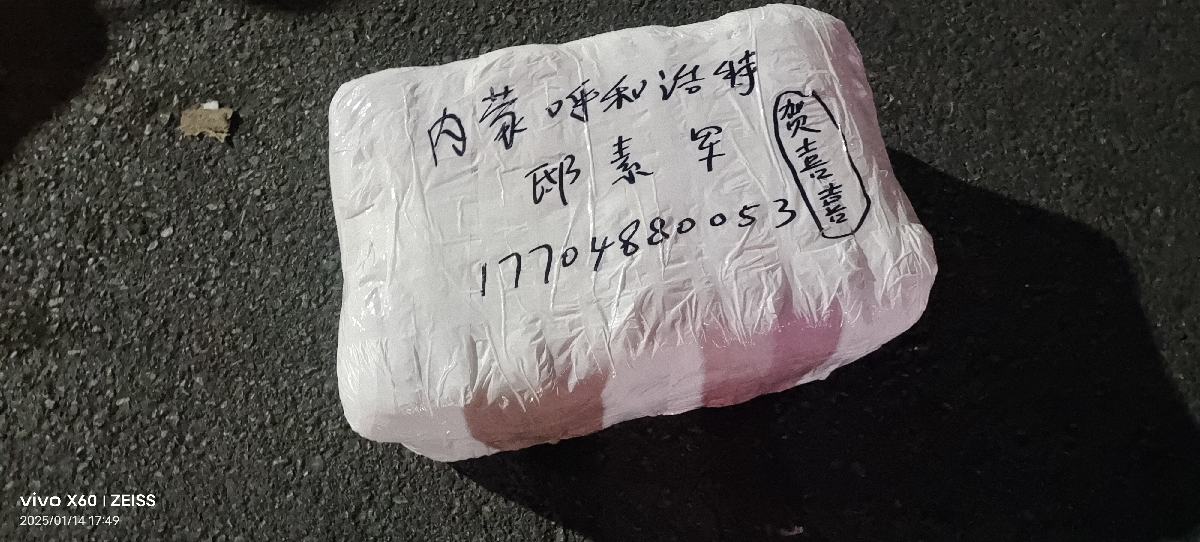 内蒙呼和浩特
邸素军
17704880053
贺喜喜
vivo X60 | ZEISS
2025/01/14 17:49